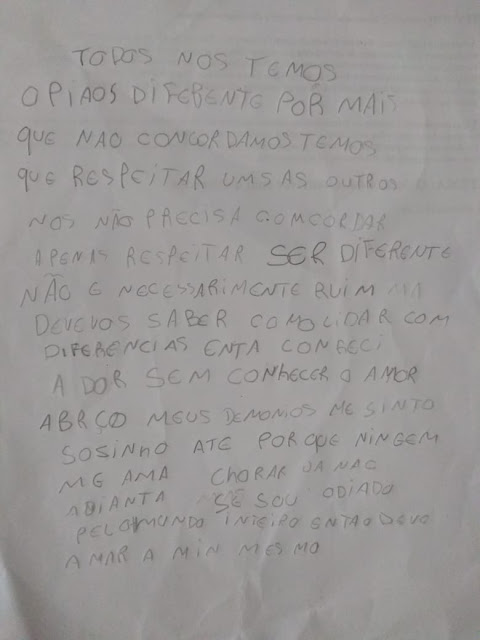 TODOS NOS TEMOS
OPIAOS DIFERENTE POR MAIS
QUE NAO CONCORDAMOS TEMOS
QUE RESPEITAR UMS AS OUTROS
NOS NÃO PRECISA COMCORDAR
APENAS RESPEITAR SER DIFERENTE
NÃO E NECESSARIMENTE RUIM
DEVEVOS SABER COMO LIDAR COM
DIFERENCIAS ENTA CONHECI
A DOR SEM CONHECER O AMOR
ABRÇO MEUS DEMONIOS ME SINTO
SOSINHO ATE PORQUE NINGEM
ME AMA CHORAR JA NAO
ADIANTA SE SOU ODIADO
PELO MUNDO INTEIRO ENTAO DEVO
AMAR A MIN MESMO